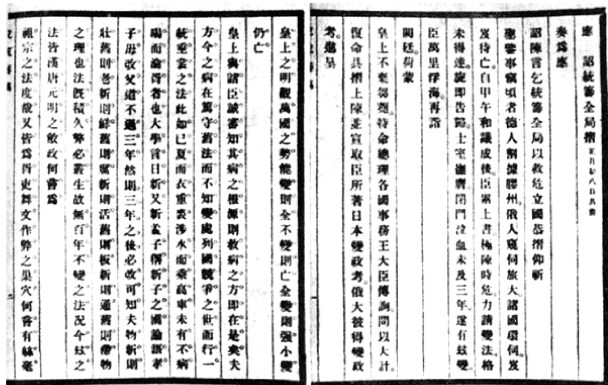 應 詔統籌全局摺 正月初八日具奏
奏爲應
詔陳言乞統籌全局以救危立國恭摺仰祈
聖鑒事竊頃者德人割據膠州俄人窺伺旅大諸國環伺岌
岌待亡自甲午和議成後臣累上書極陳時危力請變法格
未得達旋即告歸土室撫膺閉門泣血未及三年遂有茲變
臣萬里浮海再詣
闕廷荷蒙
皇上不棄芻蕘特命總理各國事務王大臣傳詢問以大計
復命具摺上陳並宣取臣所著日本變政考俄大彼得變政
考進呈
皇上之明觀萬國之勢能變則全不變則亡全變則强小變
仍亡
皇上與諸臣誠審知其病之根源則救病之方即在是矣夫
方今之病在篤守舊法而不知變處列國競爭之世而行一
統垂裳之法此如已夏而衣重裘涉水而乘高車未有不病
暍而淪胥者也大學言日新又新孟子稱新子之國論語孝
子毋改父道不過三年然則三年之後必改可知夫物新則
壯舊則老新則鮮舊則腐新則活舊則板新則通舊則滯物
之理也法既積久弊必叢生故無百年不變之法况今茲之
法皆漢唐元明之敝政何嘗爲
祖宗之法度哉又皆爲胥吏舞文作弊之巢穴何嘗有絲毫